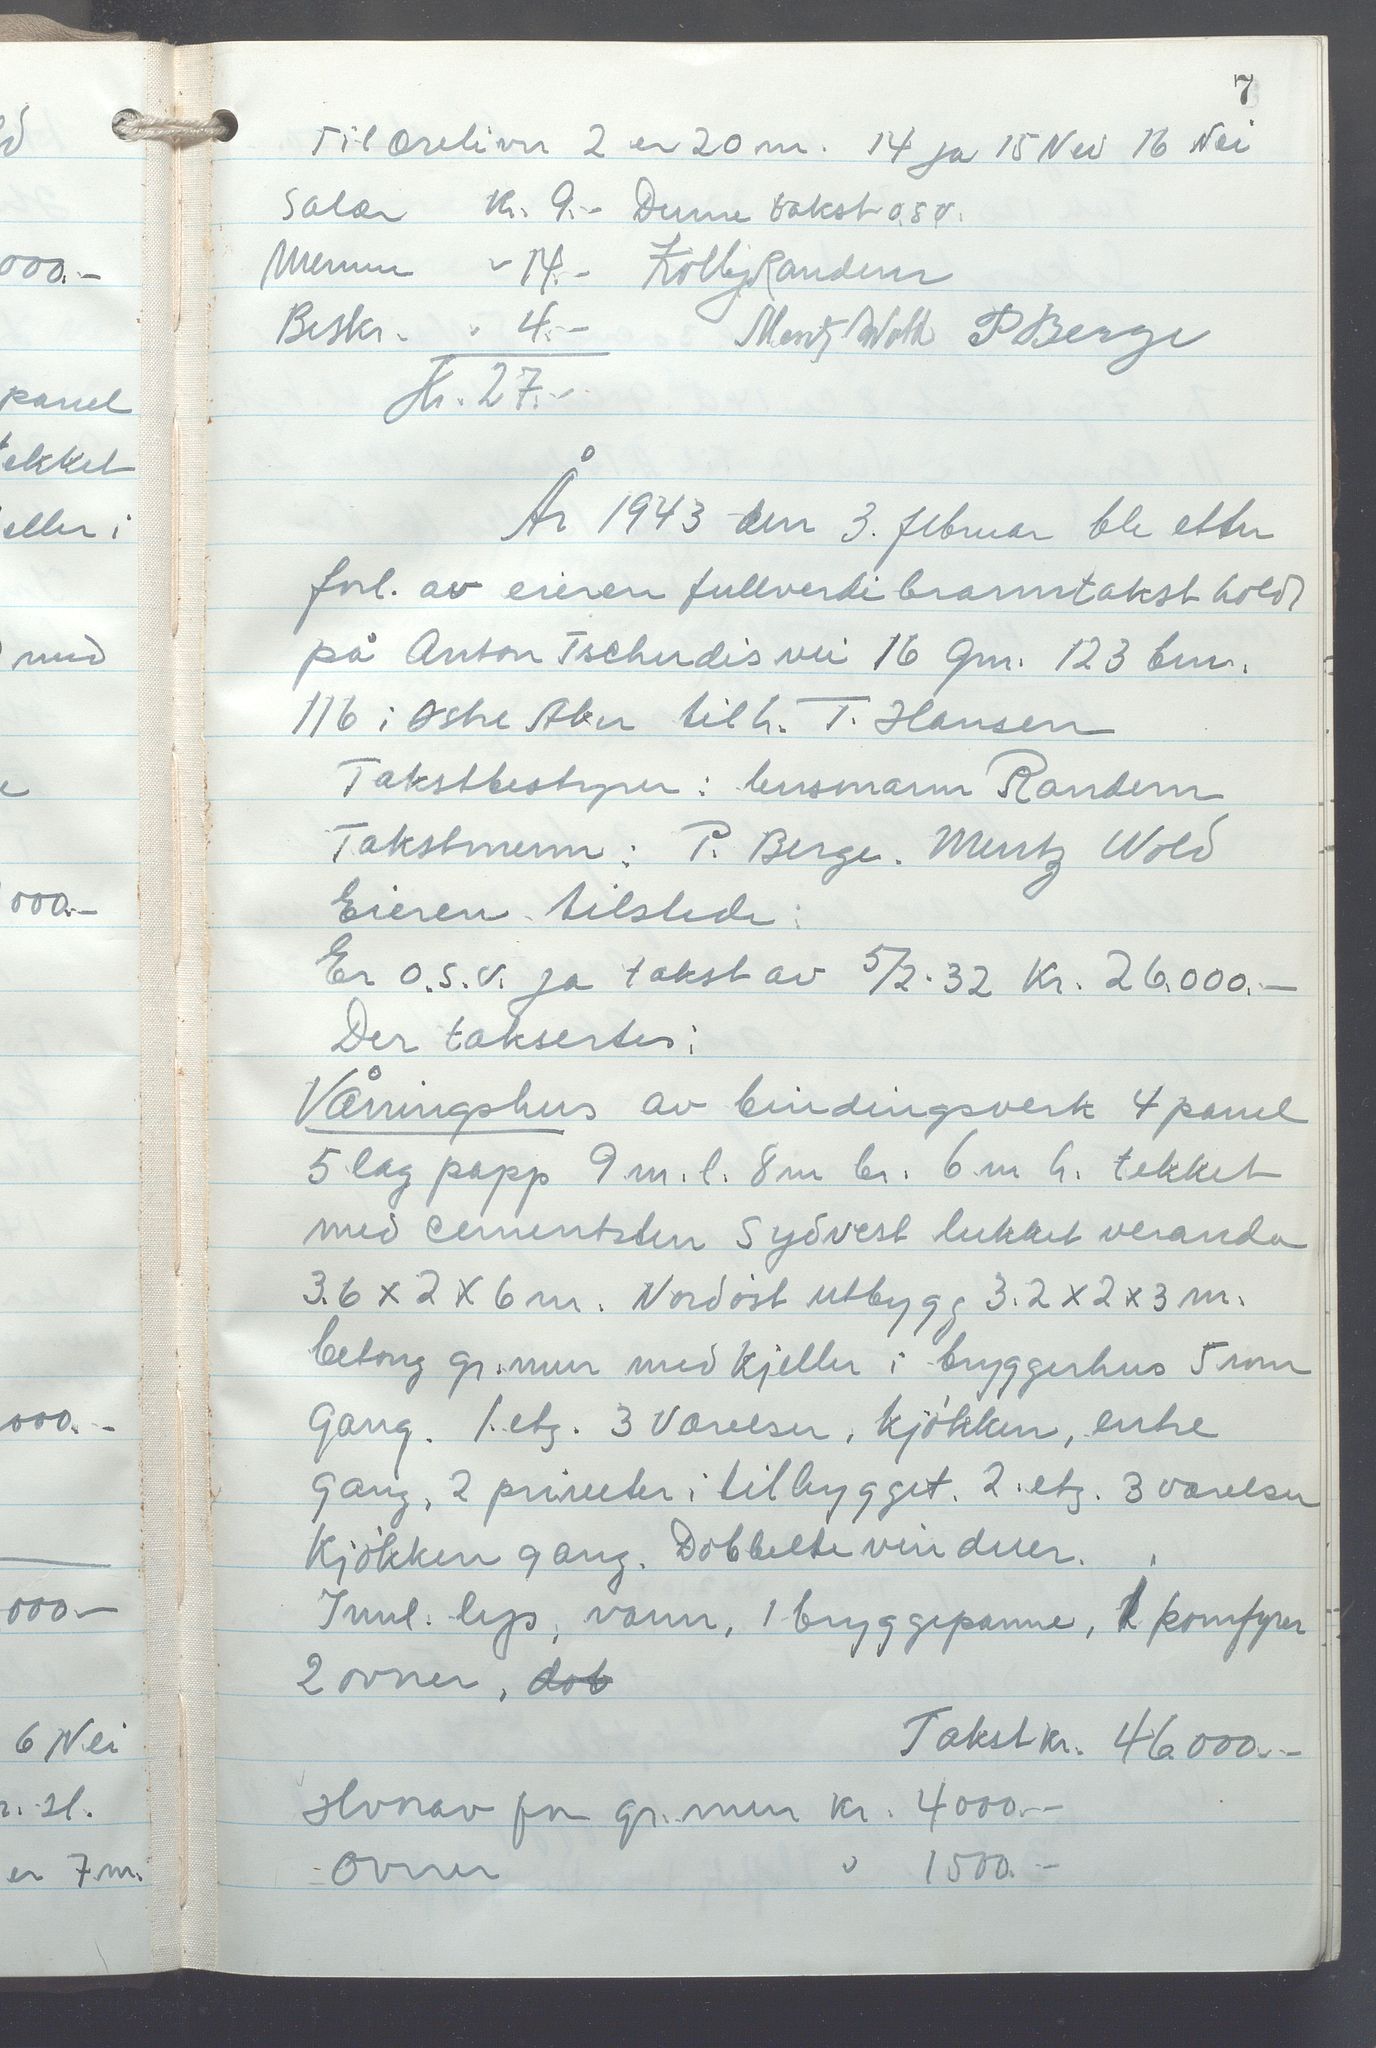 7
Til Örelivn 2 er 20 m. 14 ja 15 Nei 16 Nei
Salær Kr. 9.- Denne takst o.s.v.
Menn " 14.- Kolbj Randem
Beskr. " 4.- Mentz Wold P Berge
Kr. 27.-
År 1943 den 3. februar ble etter
forl. av eieren fullverdi branntakst holdt
på Anton Tschudis vei 16 Gnr. 123 bnr.
116 i Østre Aker tilh. T. Hansen
Takstbestyrer: lensmann Randem
Takstmenn: P. Berge. Mentz Wold
Eieren tilstede:
Er o.s.v. ja takst av 5/2.32 Kr. 26.000.-
Der taksertes:
Våningshus av bindingsverk 4 panel
5 lag papp 9 m. l. 8 m br. 6 m h. tekket
med cementsten Sydvest lukket veranda
3.6 x 2 x 6 m. Nordöst utbygg 3.2 x 2 x 3 m.
betong gr.mur med kjeller i bryggerhus 5 rom
Gang. 1. etg. 3 Værelser, kjökken, entre
gang, 2 priveter i tilbygget. 2. etg. 3 værelser
Kjökken gang. Dobbelte vinduer.
Innl. lys, vann, 1 bryggepanne, 2 komfyrer
2 ovner, dob
Takst kr. 46.000.-
Hvorav for gr.mur Kr. 4000.-
- Ovner " 1500.-
000.-
panel
tekket
eller i
med
000.-
000.-
000.-
6 Nei
er 7 m.